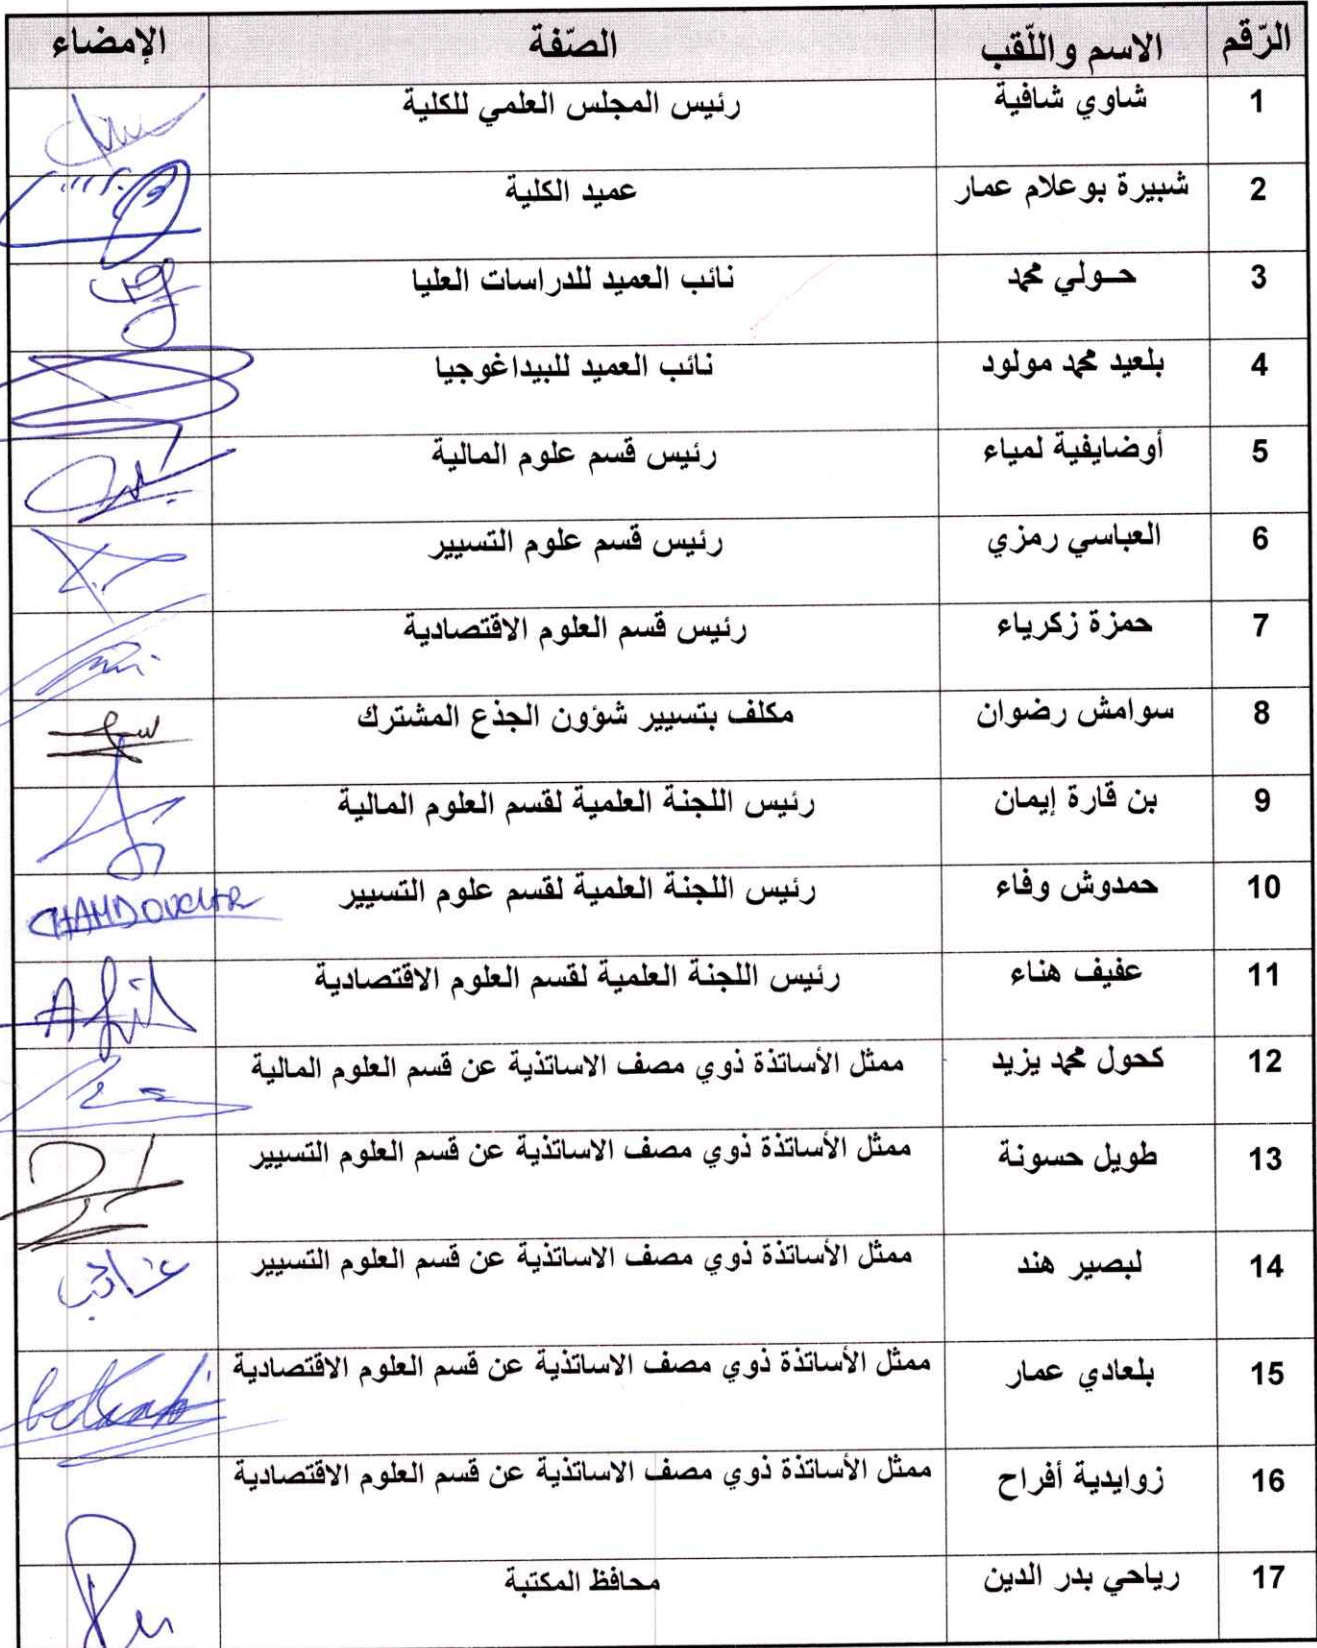 الرّقم الاسم واللّقب الصّفة الإمضاء
1 شاوي شافية رئيس المجلس العلمي للكلية
2 شبيرة بوعلام عمار عميد الكلية
3 حـولي محمد نائب العميد للدراسات العليا
4 بلعيد محمد مولود نائب العميد للبيداغوجيا
5 أوضايفية لمياء رئيس قسم علوم المالية
6 العباسي رمزي رئيس قسم علوم التسيير
7 حمزة زكرياء رئيس قسم العلوم الاقتصادية
8 سوامش رضوان مكلف بتسيير شؤون الجذع المشترك
9 بن قارة إيمان رئيس اللجنة العلمية لقسم العلوم المالية
10 حمدوش وفاء رئيس اللجنة العلمية لقسم علوم التسيير
11 عفيف هناء رئيس اللجنة العلمية لقسم العلوم الاقتصادية Afif
12 كحول محمد يزيد ممثل الأساتذة ذوي مصف الاساتذية عن قسم العلوم المالية
13 طويل حسونة ممثل الأساتذة ذوي مصف الاساتذية عن قسم العلوم التسيير
14 لبصير هند ممثل الأساتذة ذوي مصف الاساتذية عن قسم العلوم التسيير
15 بلعادي عمار ممثل الأساتذة ذوي مصف الاساتذية عن قسم العلوم الاقتصادية
16 زوايدية أفراح ممثل الأساتذة ذوي مصف الاساتذية عن قسم العلوم الاقتصادية
17 رياحي بدر الدين محافظ المكتبة